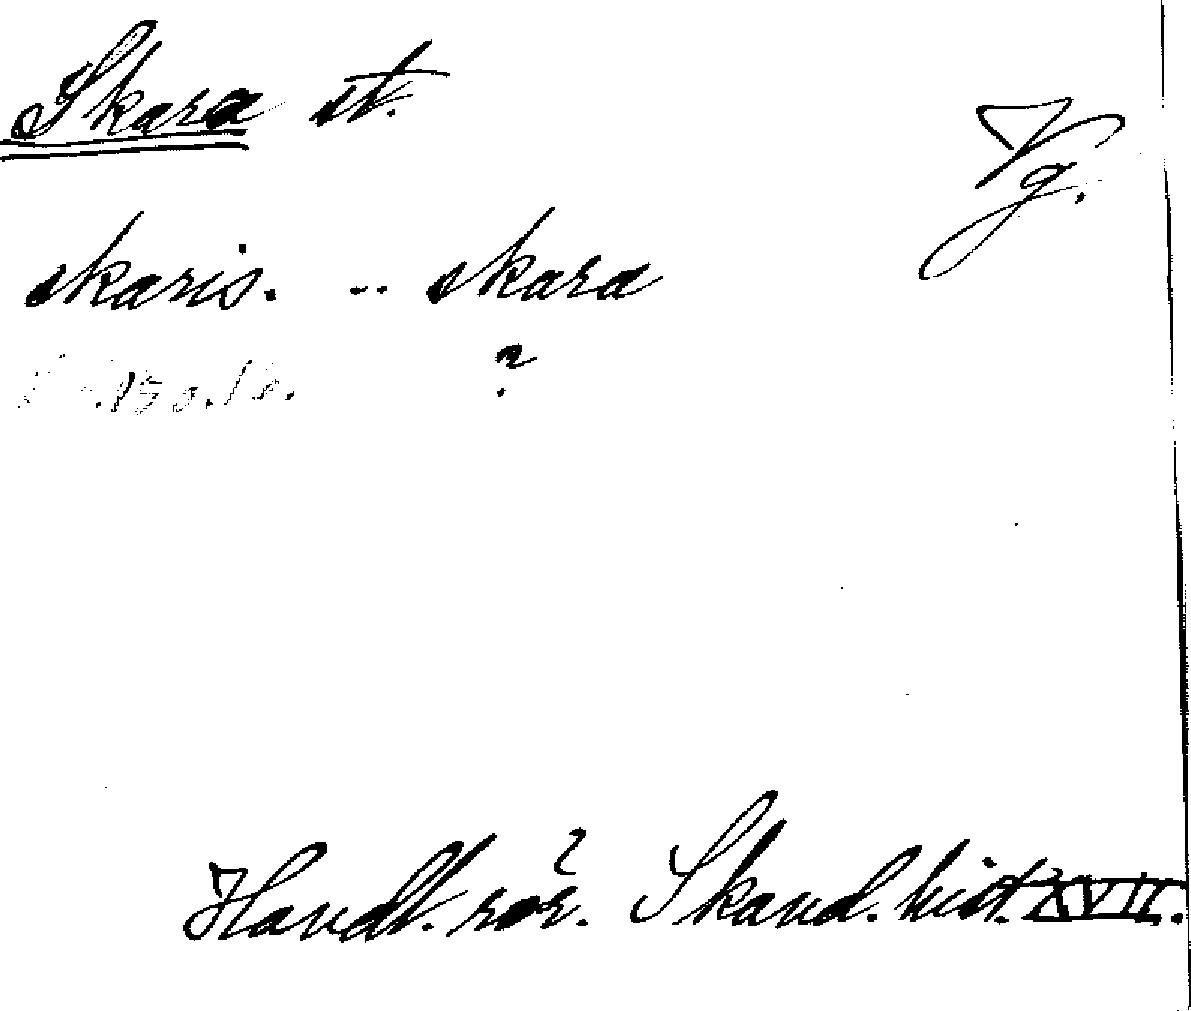 Skara st.
Vg.
skaris. .. skara
?
Handl. rör. Skand. hist. XVII.